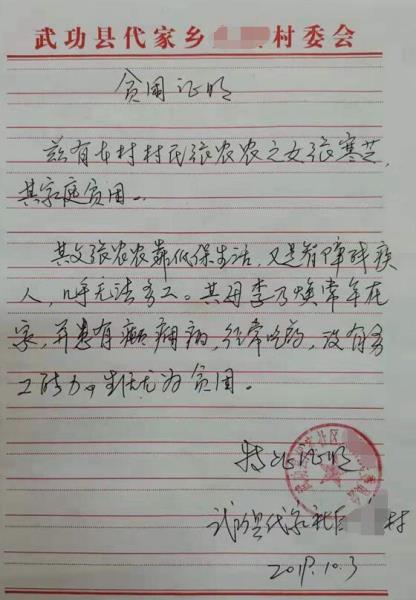 武功县代家乡 村委会
贫困证明
兹有本村村民张农农之女张寒芝,
其家庭贫困。
其父张农农靠低保生活,又是智障残疾
人,几乎无法务工。其母李乃焕常年在
家,并患有癫痫病,经常吃药,没有务
工能力,生活尤为贫困。
特此证明
武功县代家社区 村
2019.10.3